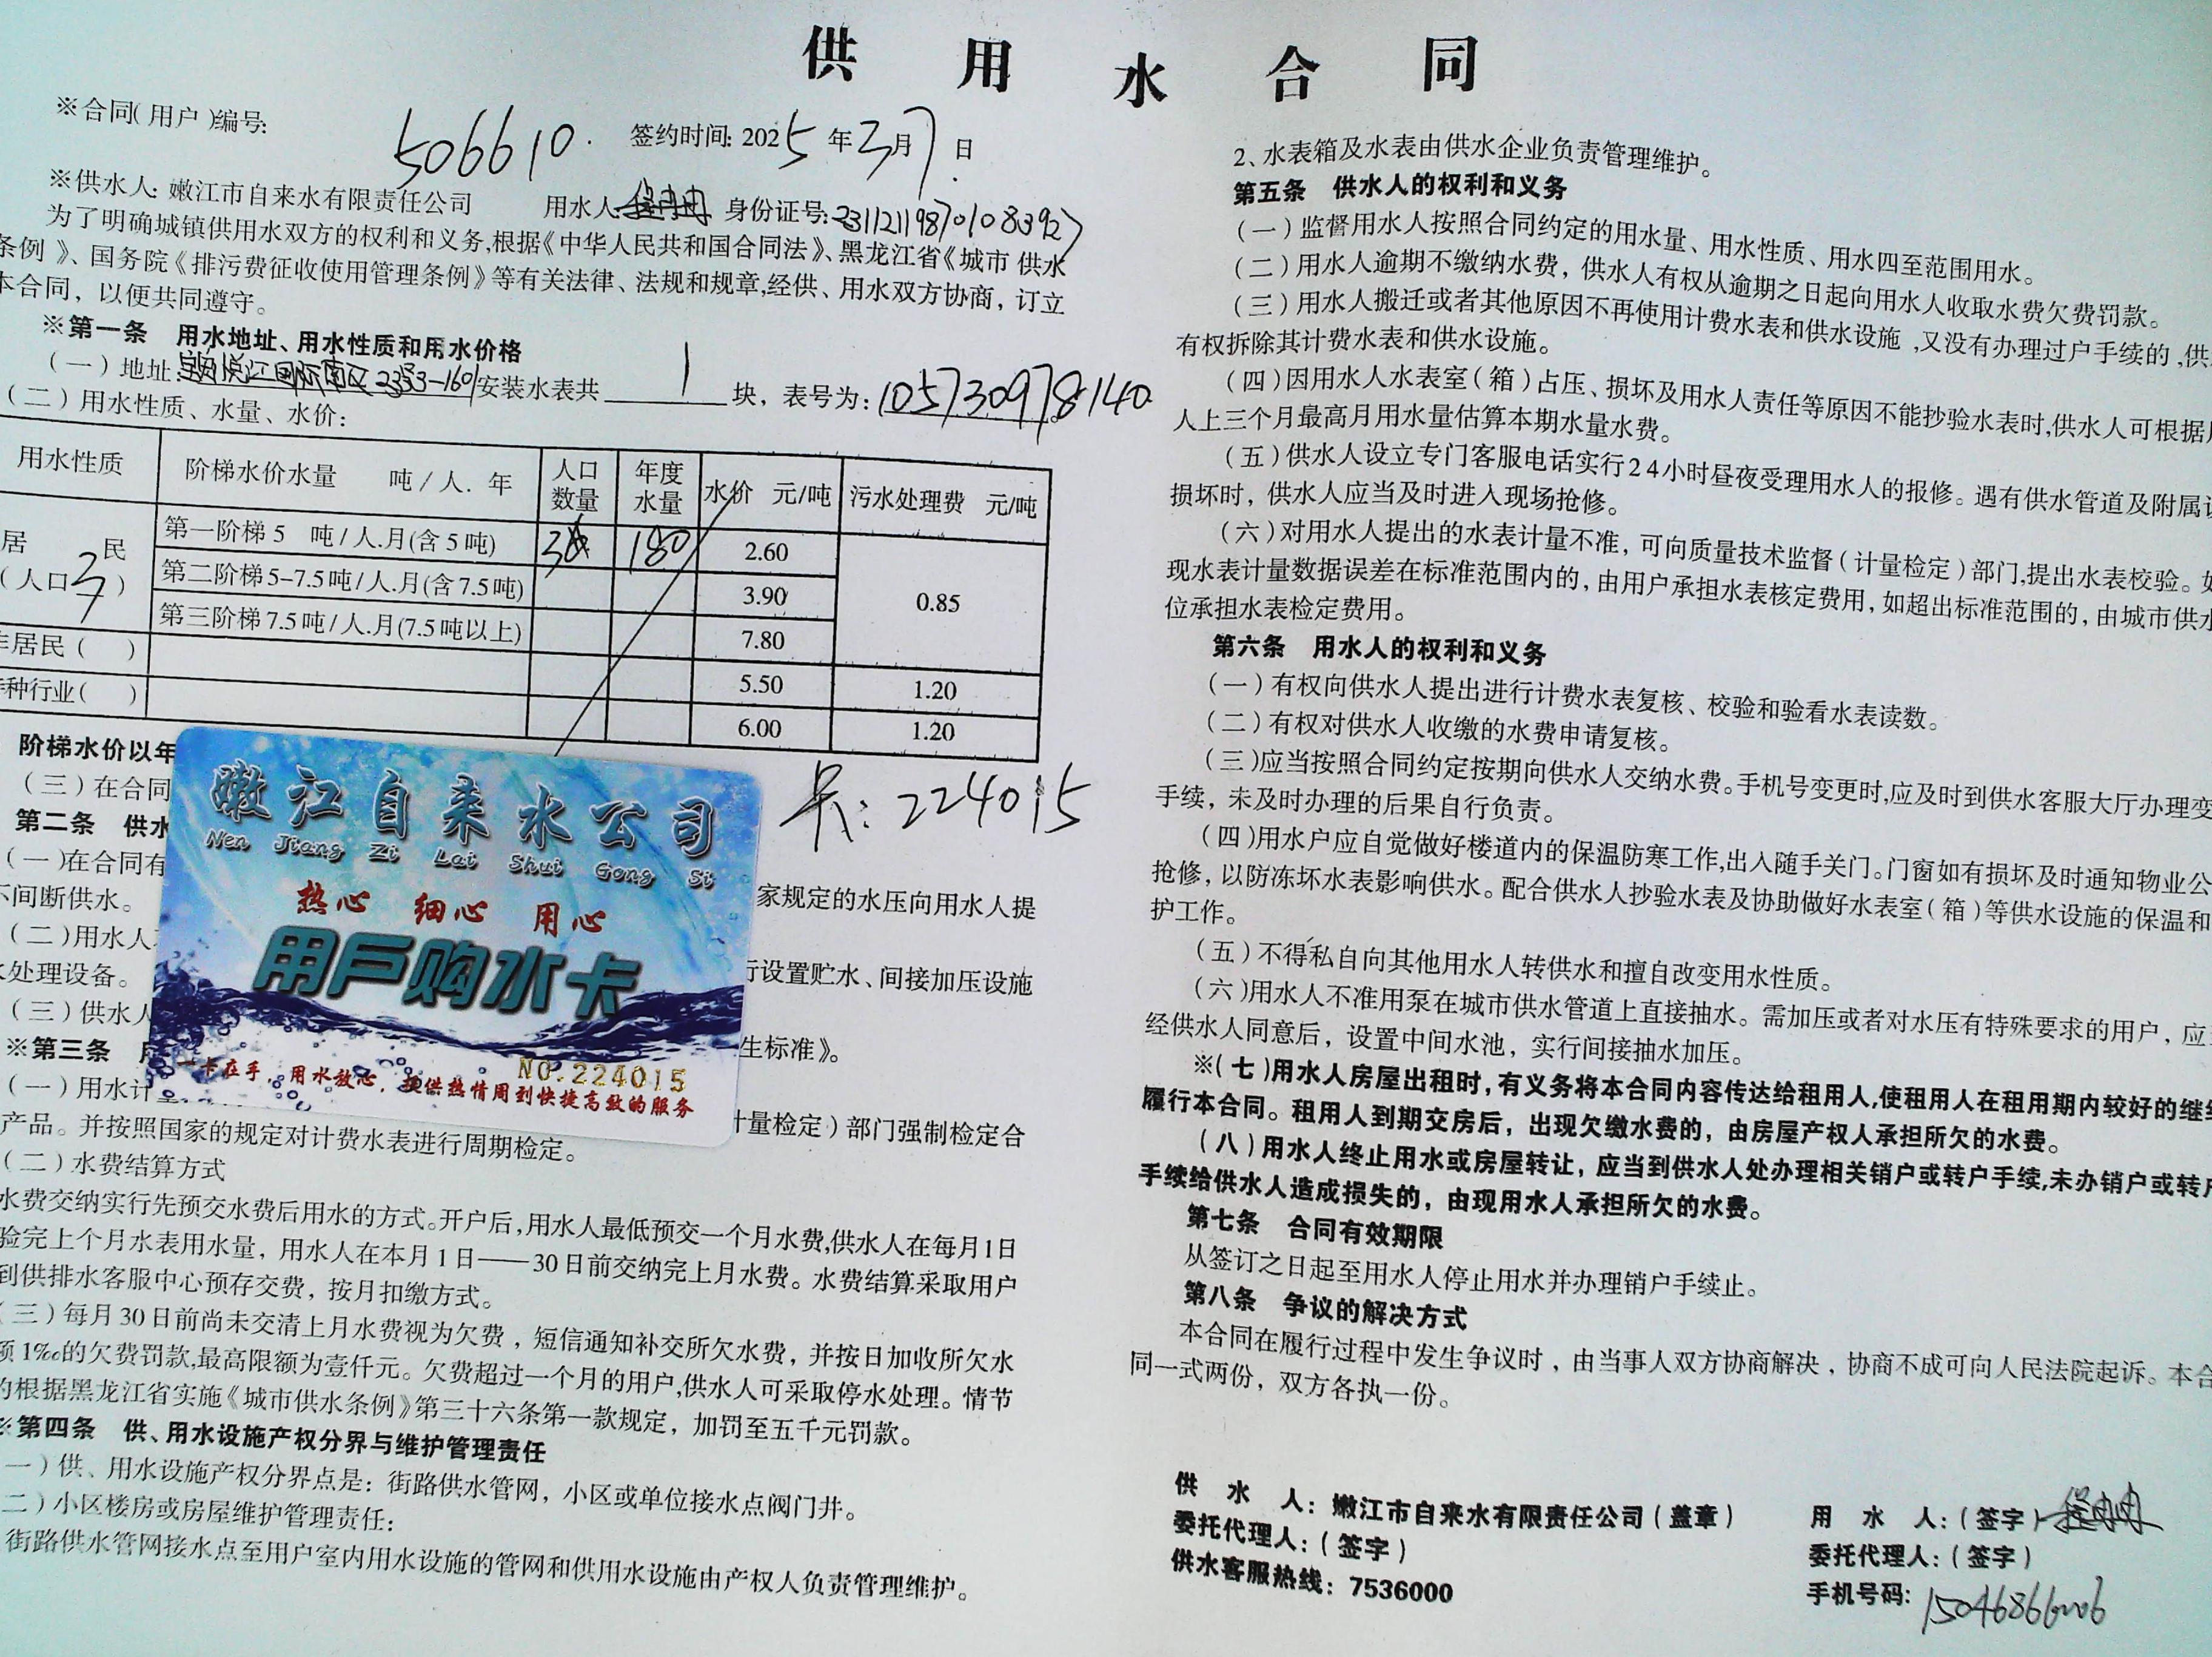 供用水合同
※合同(用户)编号: 506610. 签约时间: 2025年3月7日
※供水人: 嫩江市自来水有限责任公司 用水人: 身份证号:
为了明确城镇供用水双方的权利和义务,根据《中华人民共和国合同法》、黑龙江省《城市供水
条例》、国务院《排污费征收使用管理条例》等有关法律、法规和规章,经供、用水双方协商，订立
本合同，以便共同遵守。
※第一条 用水地址、用水性质和用水价格
(一)地址: 2353-1601安装水表共 1 块，表号为: 105730978140
(二)用水性质、水量、水价:
用水性质 阶梯水价水量 吨/人.年 人口数量 年度水量 水价 元/吨 污水处理费 元/吨
居民(人口3) 第一阶梯5 吨/人.月(含5吨) 3 180 2.60 0.85
第二阶梯5-7.5吨/人.月(含7.5吨) 3.90
第三阶梯7.5吨/人.月(7.5吨以上) 7.80
居民( ) 5.50 1.20
种行业( ) 6.00 1.20
阶梯水价以年
(三)在合同
卡: 224015
第二条 供水
(一)在合同有
家规定的水压向用水人提
不间断供水。
(二)用水人
行设置贮水、间接加压设施
水处理设备。
(三)供水人
生标准》。
※第三条
(一)用水计
计量检定)部门强制检定合
产品。并按照国家的规定对计费水表进行周期检定。
嫩江自来水公司
Nen Jiang Zi Lai Shui Gong Si
热心 细心 用心
用户购水卡
NO.224015
一卡在手，用水放心，提供热情周到快捷高效的服务
(二)水费结算方式
水费交纳实行先预交水费后用水的方式。开户后,用水人最低预交一个月水费,供水人在每月1日
验完上个月水表用水量，用水人在本月1日——30日前交纳完上月水费。水费结算采取用户
到供排水客服中心预存交费，按月扣缴方式。
(三)每月30日前尚未交清上月水费视为欠费，短信通知补交所欠水费，并按日加收所欠水
1‰的欠费罚款,最高限额为壹仟元。欠费超过一个月的用户,供水人可采取停水处理。情节
的根据黑龙江省实施《城市供水条例》第三十六条第一款规定，加罚至五千元罚款。
※第四条 供、用水设施产权分界与维护管理责任
一)供、用水设施产权分界点是: 街路供水管网，小区或单位接水点阀门井。
二)小区楼房或房屋维护管理责任:
街路供水管网接水点至用户室内用水设施的管网和供用水设施由产权人负责管理维护。
2、水表箱及水表由供水企业负责管理维护。
第五条 供水人的权利和义务
(一)监督用水人按照合同约定的用水量、用水性质、用水四至范围用水。
(二)用水人逾期不缴纳水费，供水人有权从逾期之日起向用水人收取水费欠费罚款。
(三)用水人搬迁或者其他原因不再使用计费水表和供水设施,又没有办理过户手续的,供
有权拆除其计费水表和供水设施。
(四)因用水人水表室(箱)占压、损坏及用水人责任等原因不能抄验水表时,供水人可根据
人上三个月最高月用水量估算本期水量水费。
(五)供水人设立专门客服电话实行24小时昼夜受理用水人的报修。遇有供水管道及附属
损坏时，供水人应当及时进入现场抢修。
(六)对用水人提出的水表计量不准，可向质量技术监督(计量检定)部门,提出水表校验。如
现水表计量数据误差在标准范围内的，由用户承担水表核定费用，如超出标准范围的，由城市供水
位承担水表检定费用。
第六条 用水人的权利和义务
(一)有权向供水人提出进行计费水表复核、校验和验看水表读数。
(二)有权对供水人收缴的水费申请复核。
(三)应当按照合同约定按期向供水人交纳水费。手机号变更时,应及时到供水客服大厅办理变
手续，未及时办理的后果自行负责。
(四)用水户应自觉做好楼道内的保温防寒工作,出入随手关门。门窗如有损坏及时通知物业公
抢修，以防冻坏水表影响供水。配合供水人抄验水表及协助做好水表室(箱)等供水设施的保温和
护工作。
(五)不得私自向其他用水人转供水和擅自改变用水性质。
(六)用水人不准用泵在城市供水管道上直接抽水。需加压或者对水压有特殊要求的用户，应
经供水人同意后，设置中间水池，实行间接抽水加压。
※(七)用水人房屋出租时,有义务将本合同内容传达给租用人,使租用人在租用期内较好的继续
履行本合同。租用人到期交房后，出现欠缴水费的，由房屋产权人承担所欠的水费。
(八)用水人终止用水或房屋转让，应当到供水人处办理相关销户或转户手续,未办销户或转户
手续给供水人造成损失的，由现用水人承担所欠的水费。
第七条 合同有效期限
从签订之日起至用水人停止用水并办理销户手续止。
第八条 争议的解决方式
本合同在履行过程中发生争议时，由当事人双方协商解决，协商不成可向人民法院起诉。本合
同一式两份，双方各执一份。
供水人: 嫩江市自来水有限责任公司(盖章) 用水人:(签字)
委托代理人:(签字) 委托代理人:(签字)
供水客服热线: 7536000 手机号码: